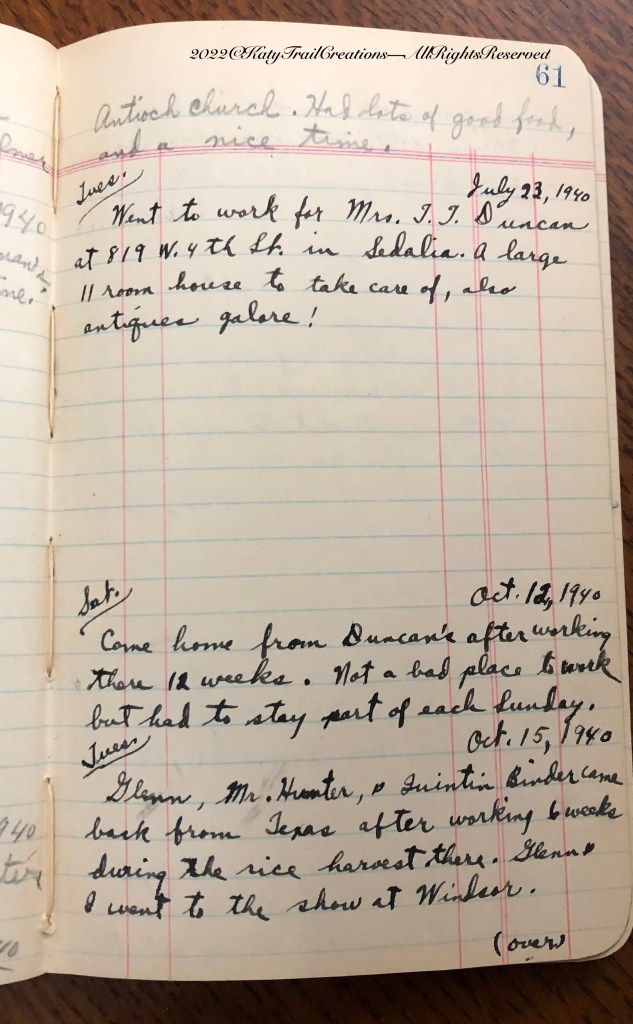 2022©KatyTrailCreations—AllRightsReserved
61
Antioch church. Had lots of good food,
and a nice time.
Tues. July 23, 1940
Went to work for Mrs. T. T. Duncan
at 819 W. 4th St. in Sedalia. A large
11 room house to take care of, also
antiques galore!
Sat. Oct. 12, 1940
Come home from Duncan's after working
there 12 weeks. Not a bad place to work
but had to stay part of each Sunday.
Tues. Oct. 15, 1940
Glenn, Mr. Hunter, & Quintin Binder came
back from Texas after working 6 weeks
during the rice harvest there. Glenn &
I went to the show at Windsor.
(over)
1940
940